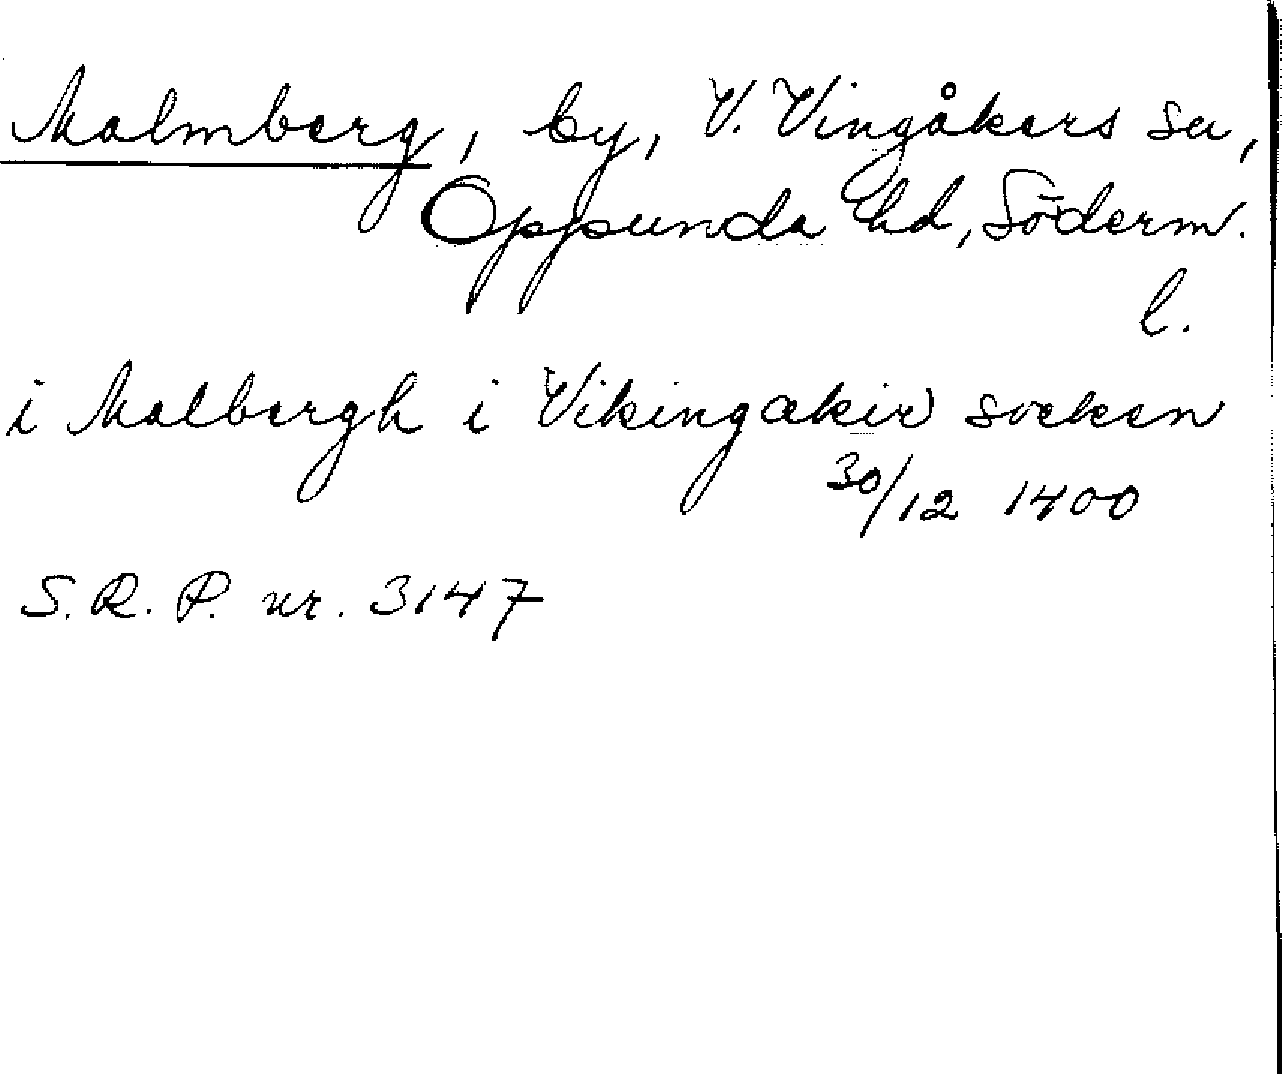 Malmberg, by, V. Vingåkers sn,
Oppunda hd, Söderm.
l.
i Malbergh i Vikingakir socken
30/12 1400
S. R. P. nr. 3147